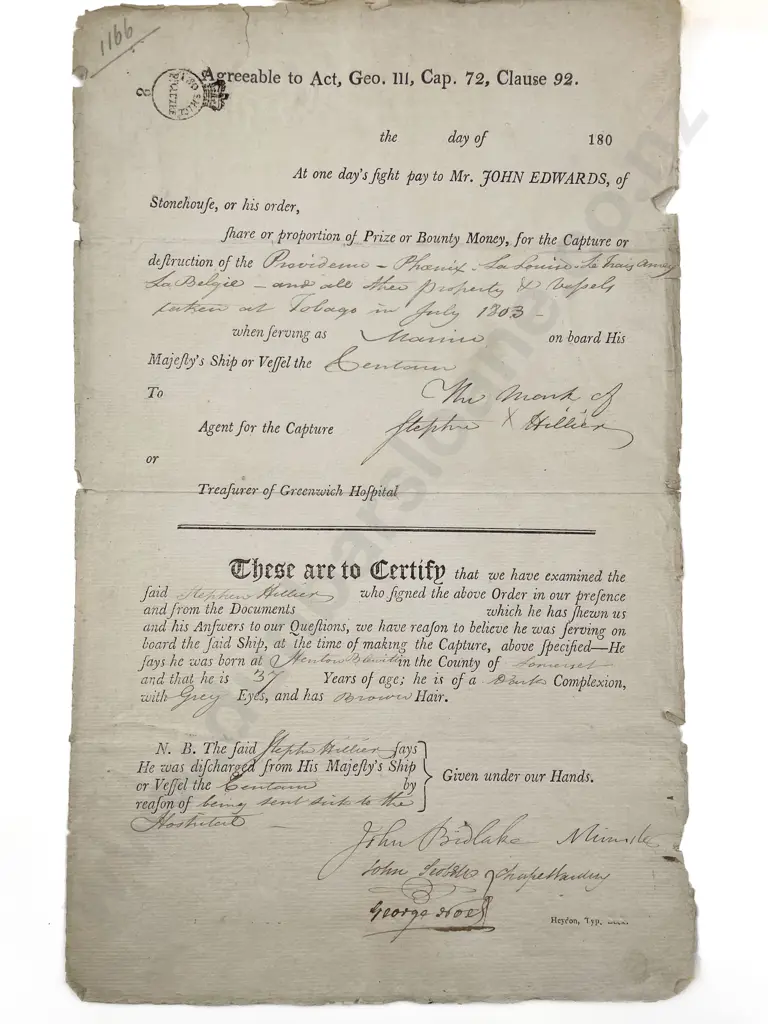 1166
Agreeable to Act, Geo. III, Cap. 72, Clause 92.
8
the day of 180
At one day's ſight pay to Mr. JOHN EDWARDS, of
Stonehouſe, or his order,
ſhare or proportion of Prize or Bounty Money, for the Capture or
deſtruction of the Providence - Phœnix - La Louise - Le Trais Amis
La Belgie - and all other Property & Veſsels
taken at Tobago in July 1803 -
when ſerving as Marine on board His
Majeſty's Ship or Veſſel the Centaur
To The Mark of
Agent for the Capture Stephen X Hillier
or
Treaſurer of Greenwich Hoſpital
These are to Certify that we have examined the
ſaid Stephen Hillier who ſigned the above Order in our preſence
and from the Documents which he has ſhewn us
and his Anſwers to our Queſtions, we have reaſon to believe he was ſerving on
board the ſaid Ship, at the time of making the Capture, above ſpecified—He
ſays he was born at in the County of Somerset
and that he is 37 Years of age; he is of a Dark Complexion,
with Grey Eyes, and has Brown Hair.
N. B. The ſaid Stephn Hillier ſays
He was diſcharged from His Majeſty's Ship
or Veſſel the Centaur by
reaſon of being sent sick to the
Hospital -
Given under our Hands.
John Bidlake Minister
John Chapel Warden
George
Heydon, Typ.